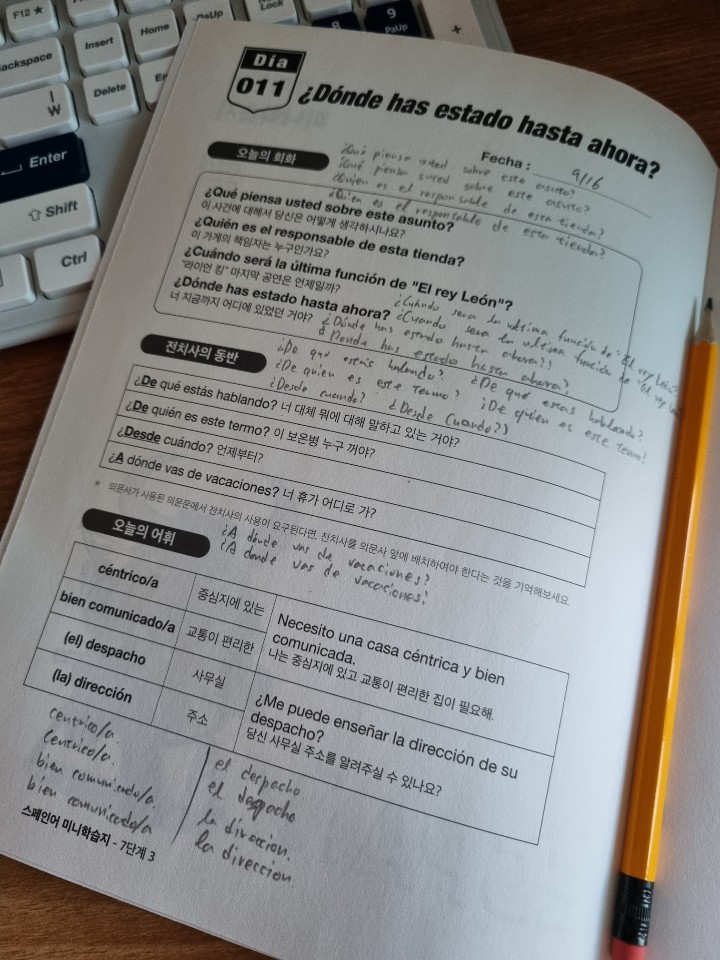 F12 ★
Lock
PaUp
8
9
PaUp
+
Backspace
Insert
Home
Delete
W
Enter
⇧ Shift
Ctrl
Día
011
¿Dónde has estado hasta ahora?
Fecha : 9/16
오늘의 회화
¿Qué piensa usted sobre este asunto?
¿Qué piensa usted sobre este asunto?
¿Quien es el responsable de esta tienda?
¿Quien es el responsable de esta tienda?
¿Qué piensa usted sobre este asunto?
이 사건에 대해서 당신은 어떻게 생각하시나요?
¿Quién es el responsable de esta tienda?
이 가게의 책임자는 누구인가요?
¿Cuándo será la última función de "El rey León"?
"라이언 킹" 마지막 공연은 언제일까?
¿Dónde has estado hasta ahora?
너 지금까지 어디에 있었던 거야?
¿Cuándo sera la ultima función de "El rey León?
¿Cuando sera la ultima función de "El rey
¿Dónde has estado hasta ahora?
¿Donde has estado hasta ahora?
전치사의 동반
¿De qué estás hablando? ¿De que estas hablando?
¿De quien es este termo? ¿De quien es este termo?
¿Desde cuando? ¿Desde cuando?
¿De qué estás hablando? 너 대체 뭐에 대해 말하고 있는 거야?
¿De quién es este termo? 이 보온병 누구 꺼야?
¿Desde cuándo? 언제부터?
¿A dónde vas de vacaciones? 너 휴가 어디로 가?
* 의문사가 사용된 의문문에서 전치사의 사용이 요구된다면, 전치사를 의문사 앞에 배치하여야 한다는 것을 기억해보세요.
오늘의 어휘
¿A dónde vas de vacaciones?
¿A donde vas de vacaciones?
céntrico/a 중심지에 있는
bien comunicado/a 교통이 편리한
Necesito una casa céntrica y bien
comunicada.
나는 중심지에 있고 교통이 편리한 집이 필요해.
(el) despacho 사무실
(la) dirección 주소
¿Me puede enseñar la dirección de su
despacho?
당신 사무실 주소를 알려주실 수 있나요?
centrico/a.
Centrico/a.
bien comunicado/a.
bien comunicado/a
el despacho
el despacho
la direccion.
la direccion.
스페인어 미니학습지 - 7단계 3